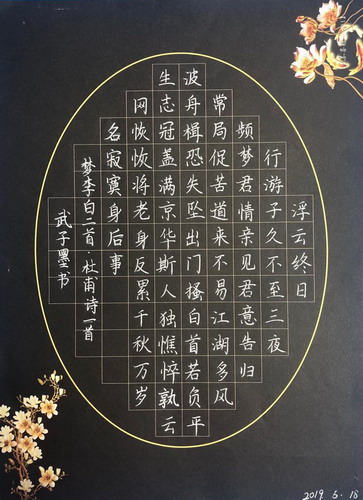 浮云终日
行游子久不至三夜
频梦君情亲见君意告归
常局促苦道来不易江湖多风
波舟楫恐失坠出门搔白首若负平
生志冠盖满京华斯人独憔悴孰云
网恢恢将老身反累千秋万岁
名寂寞身后事
梦李白二首·杜甫诗一首
武子墨书
2019 5.18